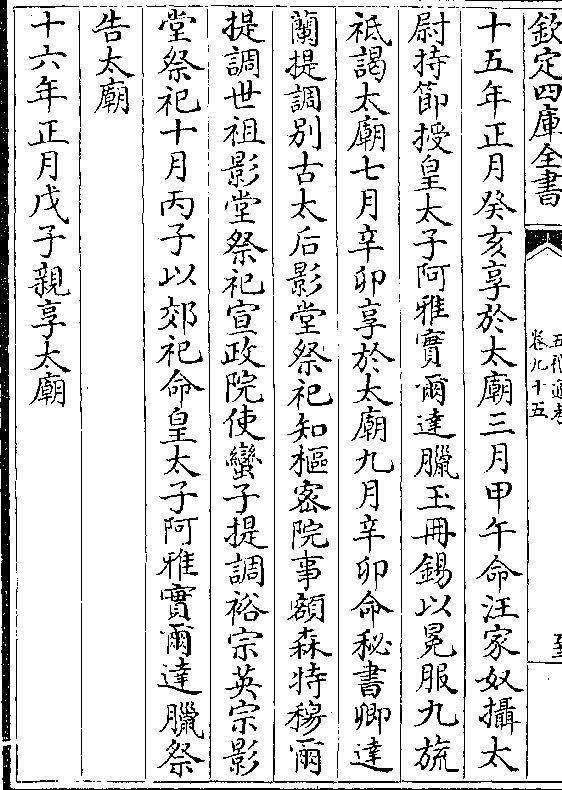 欽定四庫全書
五禮通考
卷九十五
十五年正月癸亥享於太廟三月甲午命汪家奴攝太
尉持節授皇太子阿雅實爾達臘玉冊錫以冕服九旒
祗謁太廟七月辛卯享於太廟九月辛卯命秘書卿達
蘭提調別古太后影堂祭祀知樞密院事額森特穆爾
提調世祖影堂祭祀宣政院使蠻子提調裕宗英宗影
堂祭祀十月丙子以郊祀命皇太子阿雅實爾達臘祭
告太廟
十六年正月戊子親享太廟